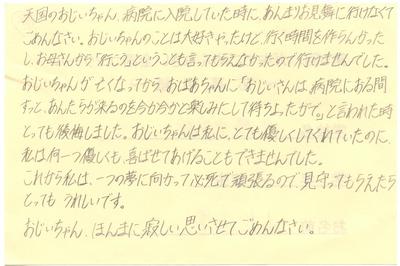 天国のおじいちゃん、病院に入院していた時に、あんまりお見舞に行けなくて
ごめんなさい。おじいちゃんのことは大好きやったけど、行く時間を作らんかった
し、お母さんから「行こう」ということも言ってもらえなかったので行けませんでした。
おじいちゃんが亡くなってから、おばあちゃんに「おじいさんは、病院にある間
ずっと、あんたらが来るのを今か今かと楽しみにして待ちよったがで。」と言われた時
とっても後悔しました。おじいちゃんは私に、とても優しくしてくれていたのに、
私は何一つ優しくも、喜ばせてあげることもできませんでした。
これから私は、一つの夢に向かって必死で頑張るので、見守ってもらえたら
とっても うれしいです。
おじいちゃん、ほんまに寂しい思いさせてごめんなさい。